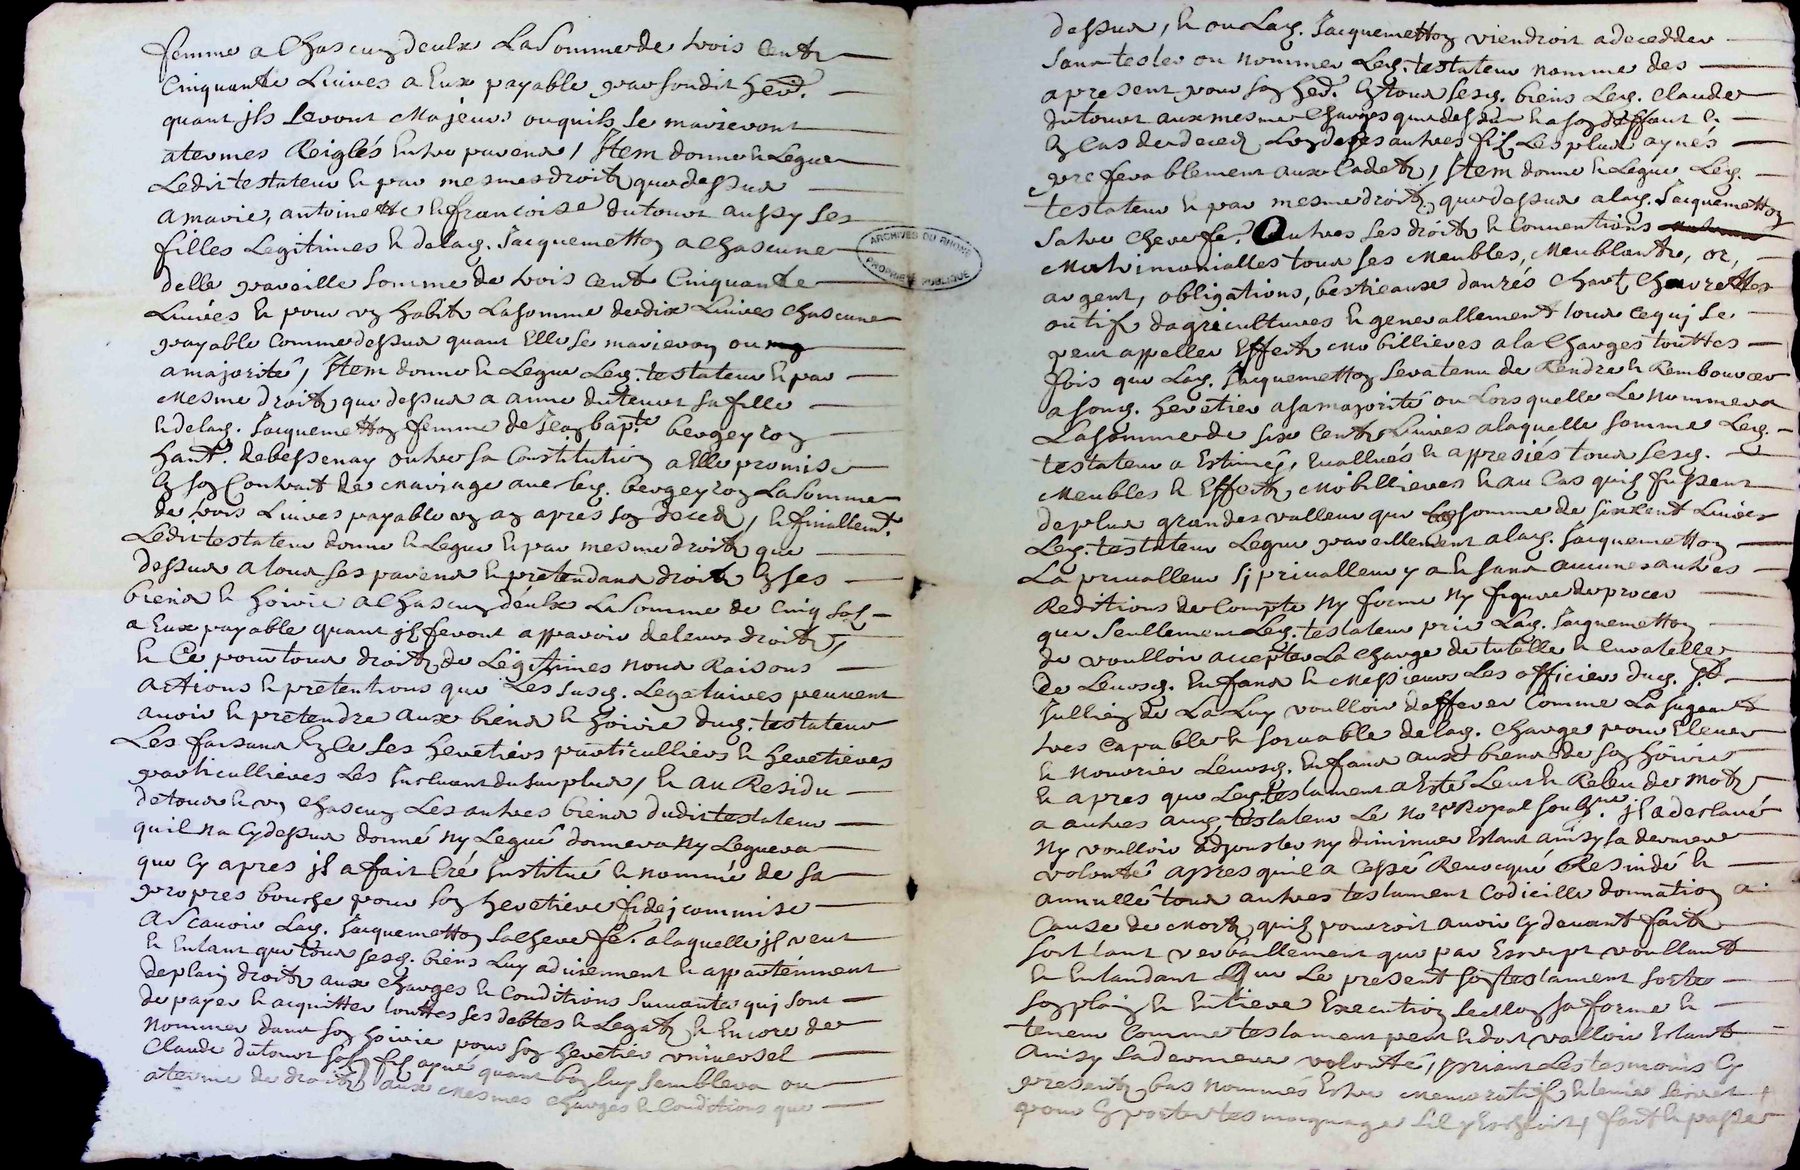 femme a Chascung deulx La Somme de trois Cents
Cinquante Livres a Eux payable par sondit herd.
quant jls seront Majeurs ou quils se marieront
a termes Reiglés Entre parens / Item donne & Legue
Ledit testateur & par mesmes droits que dessus
a marie, antoinette & francoise dutour aussy ses
filles Legitimes & de lad. Jacquemetton a Chascune
delle pareille somme de trois Cents Cinquante
Livres & pour ung habit La somme de dix Livres Chascune
payable Comme dessus quant Elle se marieron ou
a majorité, Item donne & Legue Led. testateur & par
Mesme droits que dessus a anne dutour sa fille
& de lad. Jacquemetton femme de Jean bapte. bergeyron
hant. de bessenay outre sa Constitution a Elle promise
En son Contract de Mariage avec led. bergeyron La somme
de trois Livres payable ung an apres son deced, & finallemt.
Ledit testateur donne & Legue & par mesme droits que
dessus a tous ses parens & pretendans droits En ses
biens & hoirie a Chascung deulx La Somme de Cinq sols
a Eux payable quant jls feront apparoir de leurs droits,
& Ce pour tous droits de Legitimes noms Raisons
actions & pretentions que Les susd. Legataires peuvent
avoir & pretendre aux biens & hoirie dud. testateur
Les faisans En Ce ses heretiers particulliers & heretieres
particullieres Les Excluant du surplus / & au Residu
de tous & ung Chascung Les autres biens dudit testateur
quil Na Cydessus donné Ny Legué donnera Ny Leguera
que Cy apres jl a fait Créé Institué & nommé de sa
propres bouche pour son heretiere fideycommise
Ascavoir Lad. Jacquemetton sa Chere fe. a laquelle jl veut
& Entant que tous sesd. biens Luy adviennent & appartiennent
de plain droits aux charges & Conditions suivantes quj sont
de payer & acquitter touttes ses debtes & Legats & Encore de
Nommer dans son hoirie pour son heretier universel
Claude dutour son fils ayné quant bon luy semblera ou
a terme de droits aux Mesmes charges & Conditions que
ARCHIVES DU RHONE
PROPRIÉTÉ PUBLIQUE
dessus, & ou Lad. Jacquemetton viendroit a decedder
sans tester ou nommer Led. testateur nomme des
a present pour son hed. En tous sesd. biens Led. Claude
dutour aux mesme Charges que dessus & a son deffaut &
En Cas de deced Lung de ses autres fils Les plus aynés
preferablement aux Cadets, Item donne & Legue Led.
testateur & par mesme droits que dessus a lad. Jacquemetton
sa tres Chere fe. Outres ses droits & Conventions
Matrimonialles tous ses Meubles, Meublants, or,
argent, obligations, bestieaux danrés Chart Charrettes
outifs dagricultures & generallement tous ce quj se
peut appeller Effects Mobillieres a la Charges touttes
fois que Lad. Jacquemetton sera tenu de Rendre & Rembourcer
a sond. heretier a sa majorité ou Lors quelle Le nommera
La somme de six Cents Livres a laquelle somme Led.
testateur a Estimés, Evallués & appresiés tous sesd.
Meubles & Effects Mobillieres & au Cas quils fussent
de plus grandes valleur que La somme de six Cent Livres
Led. testateur Legue pareillement a lad. Jacquemetton
La privalleur sj privalleur y a & sans aucunes autres
Reditions de Compte Ny forme Ny figure de proces
que seullement Led. testateur prie Lad. Jacquemetton
de voulloir accepter La charge de tutelle & Curatelle
de Leursd. Enfans & Messieurs Les officiers dud. St.
Jullien de La Luy voulloir defferer Comme La jugeant
tres Capable & sorvable de lad. charge pour Elever
& Nourrier Leursd. Enfans aux biens de son hoirie
& apres que Led. testament a Esté Leut & Releu de mots
a autres aud. testateur Le Nore. Royal soubzne. jl a declaré
Ny voulloir adjouster ny diminuer Estant ainsy sa derniere
volonté apres quil a Cassé Revocqué Resindé &
annullé tous autres testament Codicille donnation a
Cause de Mort quil pourroit avoir Cydevant fait
soit tant verballement que par Escript voullant
& Entandant Que Le present son testament sorte
son plain & Entiere Execution sellon sa forme &
teneur Comme testament peut & doit valloir Estant
ainsy sa derniere volonté, priant Les tesmoins Cy
presents bas nommés Estre Memoratifs & tenir secret
pour En porter tesmoignage sil y Escheoit, fait & passé